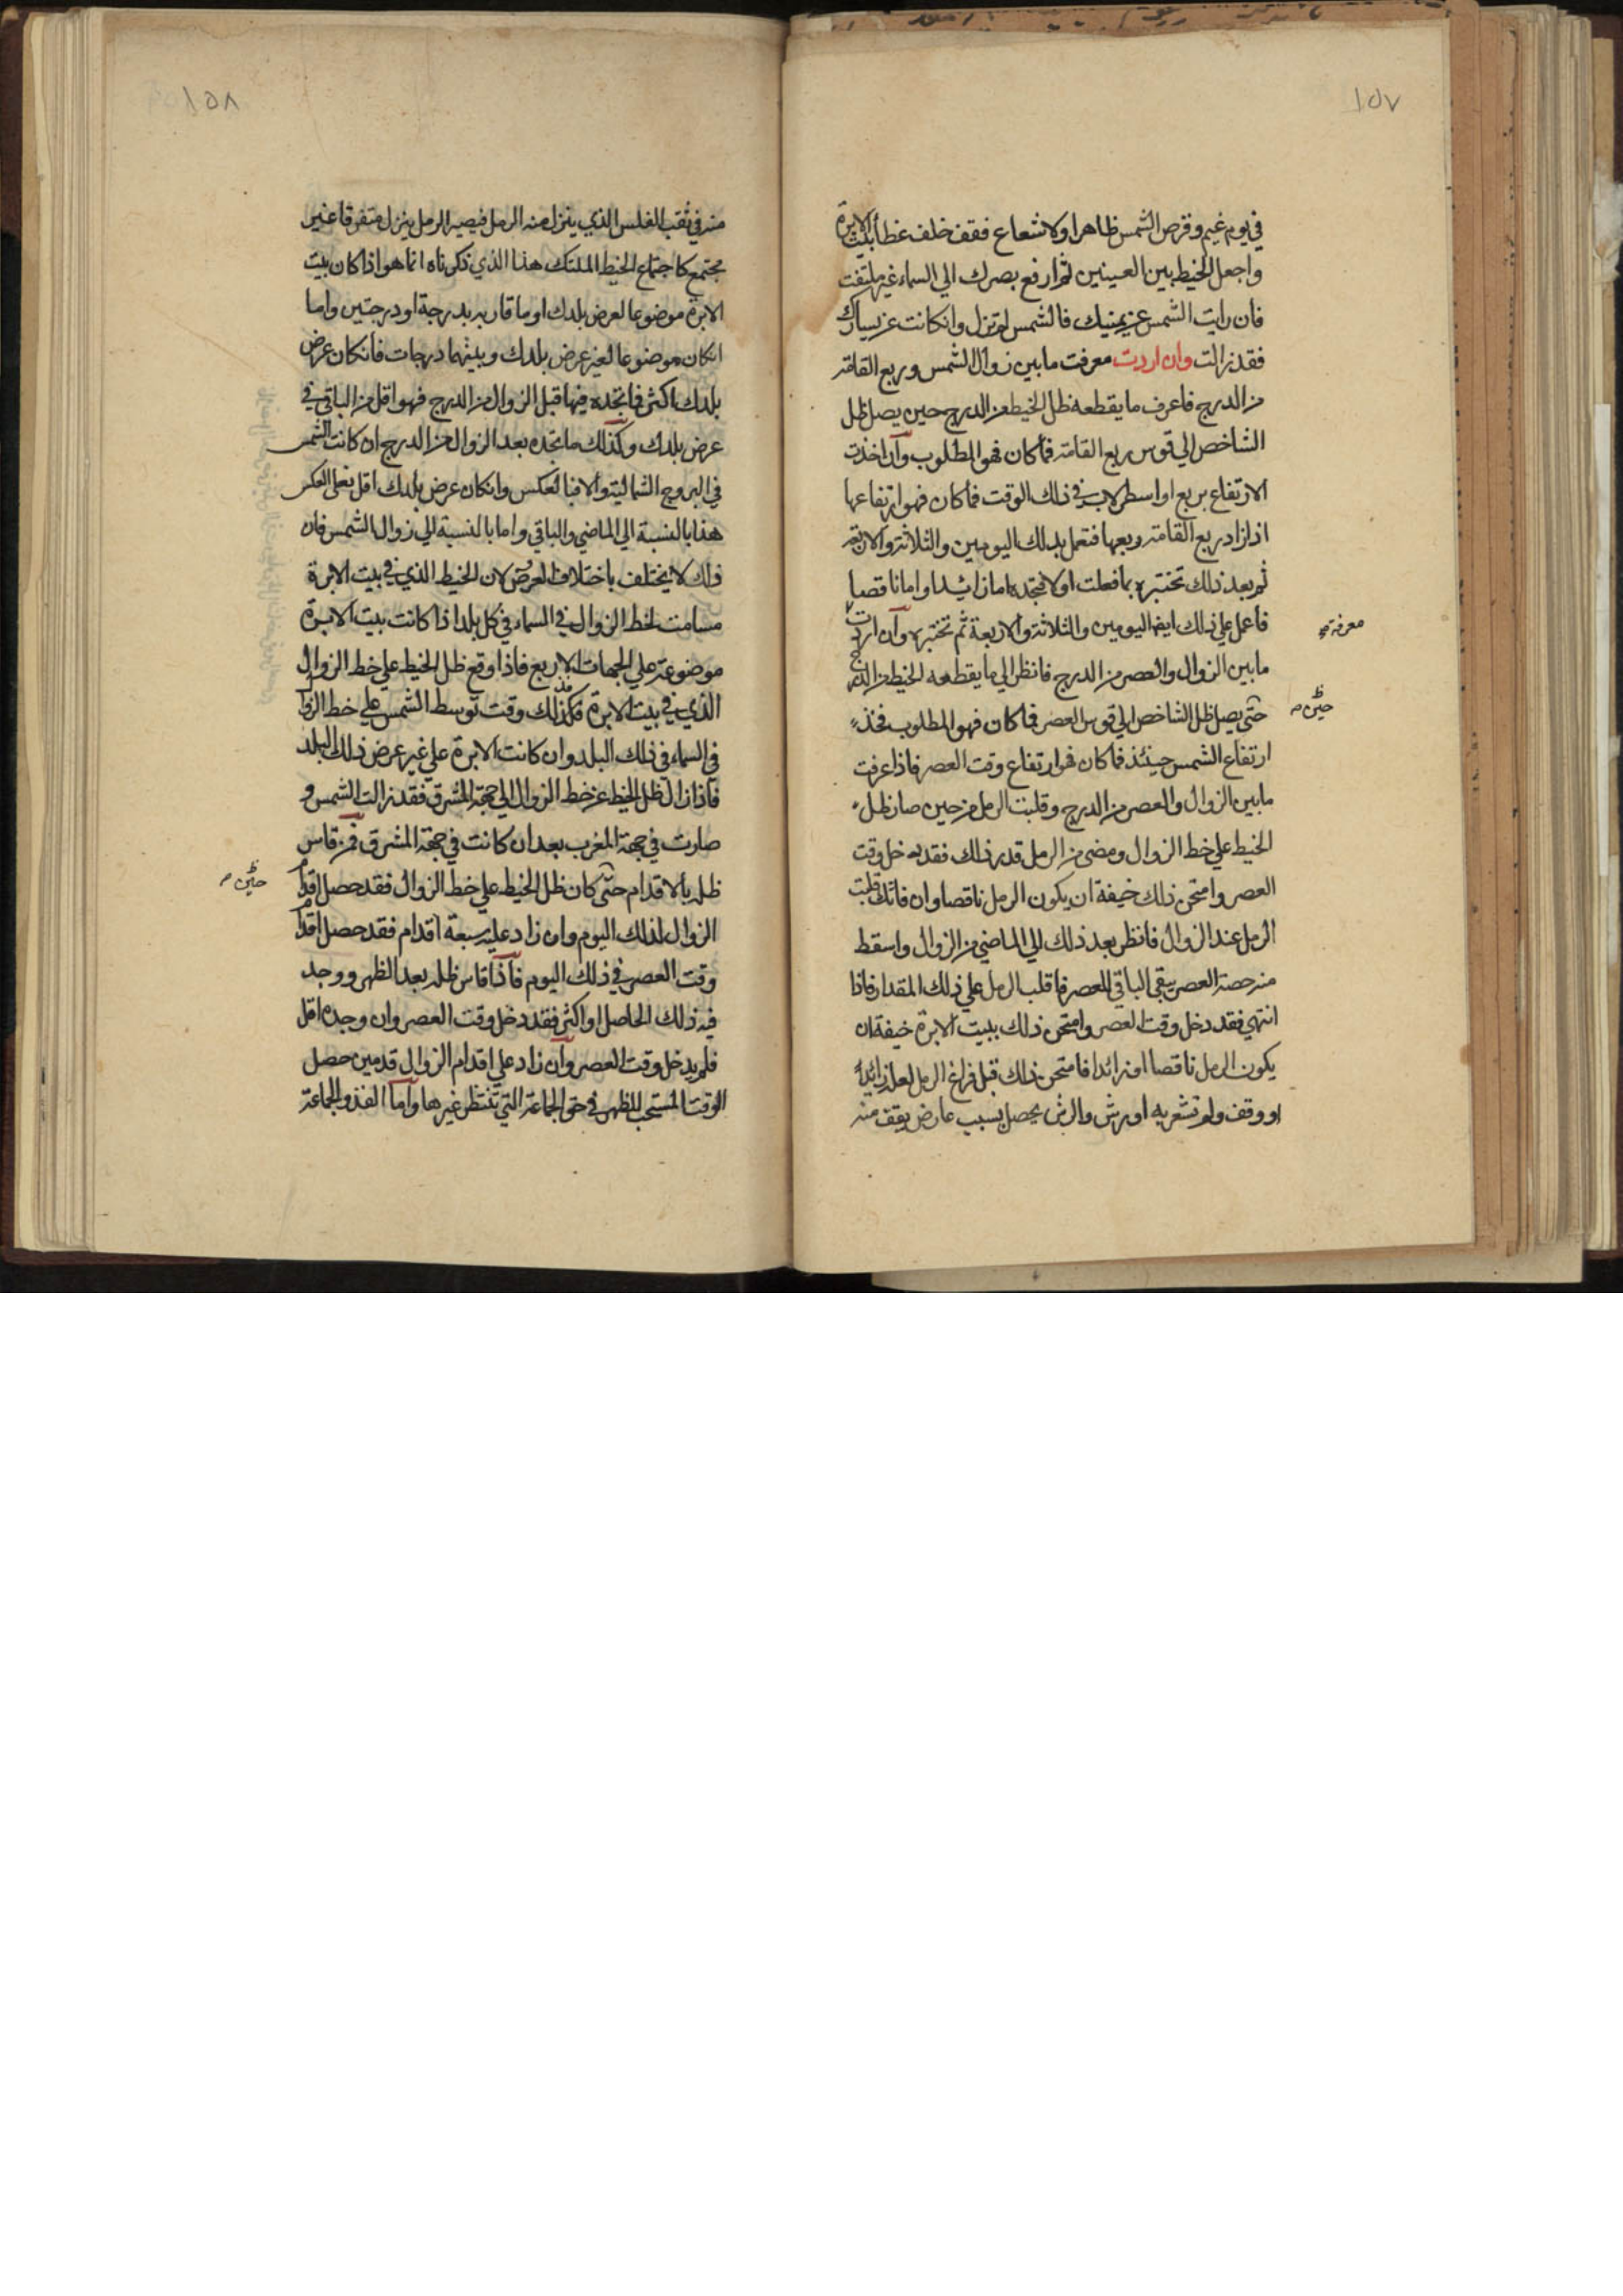 ١٥٧
في يوم غيم وقرص الشمس ظاهرا ولا شعاع فقف خلف غطأ بيت الابرة
واجعل الخيط بين العينين ثم ارفع بصرك الي السماء غير ملتفت
فان رايت الشمس عن يمينك فالشمس لم تزل وانكانت عن يسارك
فقد زالت وان اردت معرفت ما بين زوال الشمس وربع القامة
من الدرج فاعرف ما يقطعه ظل الخيط من الدرج حين يصل ظل
الشاخص الي قوس ربع القامة فما كان فهو المطلوب وان اخذت
الارتفاع بربع او اسطرلاب في ذلك الوقت فما كان فهو ارتفاعها
اذا زاد ربع القامة وربعها فتعمل بذلك اليومين والثلاثة والاربعة
ثم بعد ذلك تختبره بما فعلت اولا تجده اما زائدا واما ناقصا
فاعمل علي ذلك ايضا اليومين والثلاثة والاربعة ثم تختبره وان اردت
معرفة
ما بين الزوال والعصر من الدرج فانظر الي ما يقطعه الخيط من الدرج
حتي يصل ظل الشاخص الي قوس العصر فما كان فهو المطلوب فخذ
حين
ارتفاع الشمس حينئذ فما كان فهو ارتفاع وقت العصر فاذا عرفت
ما بين الزوال والعصر من الدرج وقلبت الرمل من حين صار ظل
الخيط علي خط الزوال ومضي من الرمل قدر ذلك فقد دخل وقت
العصر وامتحن ذلك خيفة ان يكون الرمل ناقصا وان فاتك قلبت
الرمل عند الزوال فانظر بعد ذلك الي الماضي من الزوال واسقط
منه حصة العصر يبقي الباقي للعصر فاقلب الرمل علي ذلك المقدار فاذا
انتهي فقد دخل وقت العصر وامتحن ذلك ببيت الابرة خيفة ان
يكون الرمل ناقصا او زائدا فامتحن ذلك قبل فراغ الرمل لعله زائدا
او وقف ولم تشعر به او رش والرش يحصل بسبب عارض يقف منه
١٥٨
منه في ثقب الفلس الذي ينزل منه الرمل فيصير الرمل ينزل متفرقا غير
مجتمع كاجتماع الخيط الملتك هذا الذي ذكرناه انما هو اذا كان بيت
الابرة موضوعا لعرض بلدك او ما قاربه بدرجة او درجتين واما
انكان موضوعا لغير عرض بلدك وبينهما درجات فانكان عرض
بلدك اكثر فما تجده فيها قبل الزوال من الدرج فهو اقل من الباقي في
عرض بلدك وكذلك ما تجده بعد الزوال من الدرج ان كانت الشمس
في البروج الشمالية والا فبالعكس وانكان عرض بلدك اقل فعلي العكس
هذا بالنسبة الي الماضي والباقي واما بالنسبة الي زوال الشمس فان
ذلك لا يختلف باختلاف العرض لان الخيط الذي في بيت الابرة
مسامت لخط الزوال في السماء في كل بلد اذا كانت بيت الابرة
موضوعة علي الجهات الاربع فاذا وقع ظل الخيط علي خط الزوال
الذي في بيت الابرة فكذلك وقت توسط الشمس علي خط الزوال
في السماء في ذلك البلد وان كانت الابرة علي غير عرض ذلك البلد
فاذا زال ظل الخيط عن خط الزوال الي جهة المشرق فقد زالت الشمس و
صارت في جهة المغرب بعد ان كانت في جهة المشرق فمن قاس
ظله بالاقدام حتي كان ظل الخيط علي خط الزوال فقد حصل اقدام
حين
الزوال لذلك اليوم وان زاد عليه سبعة اقدام فقد حصل اقدام
وقت العصر في ذلك اليوم فاذا قاس ظله بعد الظهر ووجد
فيه ذلك الحاصل او اكثر فقد دخل وقت العصر وان وجده اقل
فلم يدخل وقت العصر وان زاد علي اقدام الزوال قدمين حصل
الوقت المستحب للظهر في حق الجماعة التي تنتظر غيرها واما الفذ والجماعة